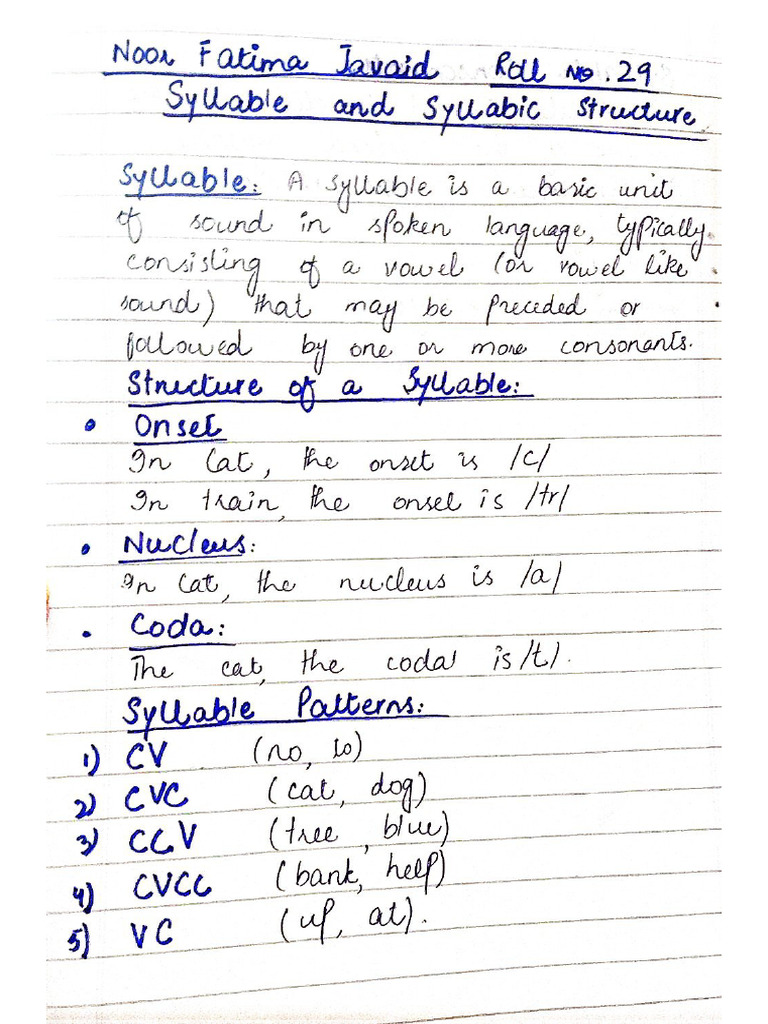 Noor Fatima Javaid Roll No. 29
Syllable and Syllabic Structure
Syllable: A syllable is a basic unit
of sound in spoken language, typically
consisting of a vowel (or vowel like
sound) that may be preceded or
followed by one or more consonants.
Structure of a Syllable:
• Onset
In Cat, the onset is /c/
In train, the onset is /tr/
• Nucleus:
In Cat, the nucleus is /a/
• Coda:
The cat, the coda is /t/.
Syllable Patterns:
1) CV (no, to)
2) CVC (cat, dog)
3) CCV (tree, blue)
4) CVCC (bank, help)
5) VC (up, at).